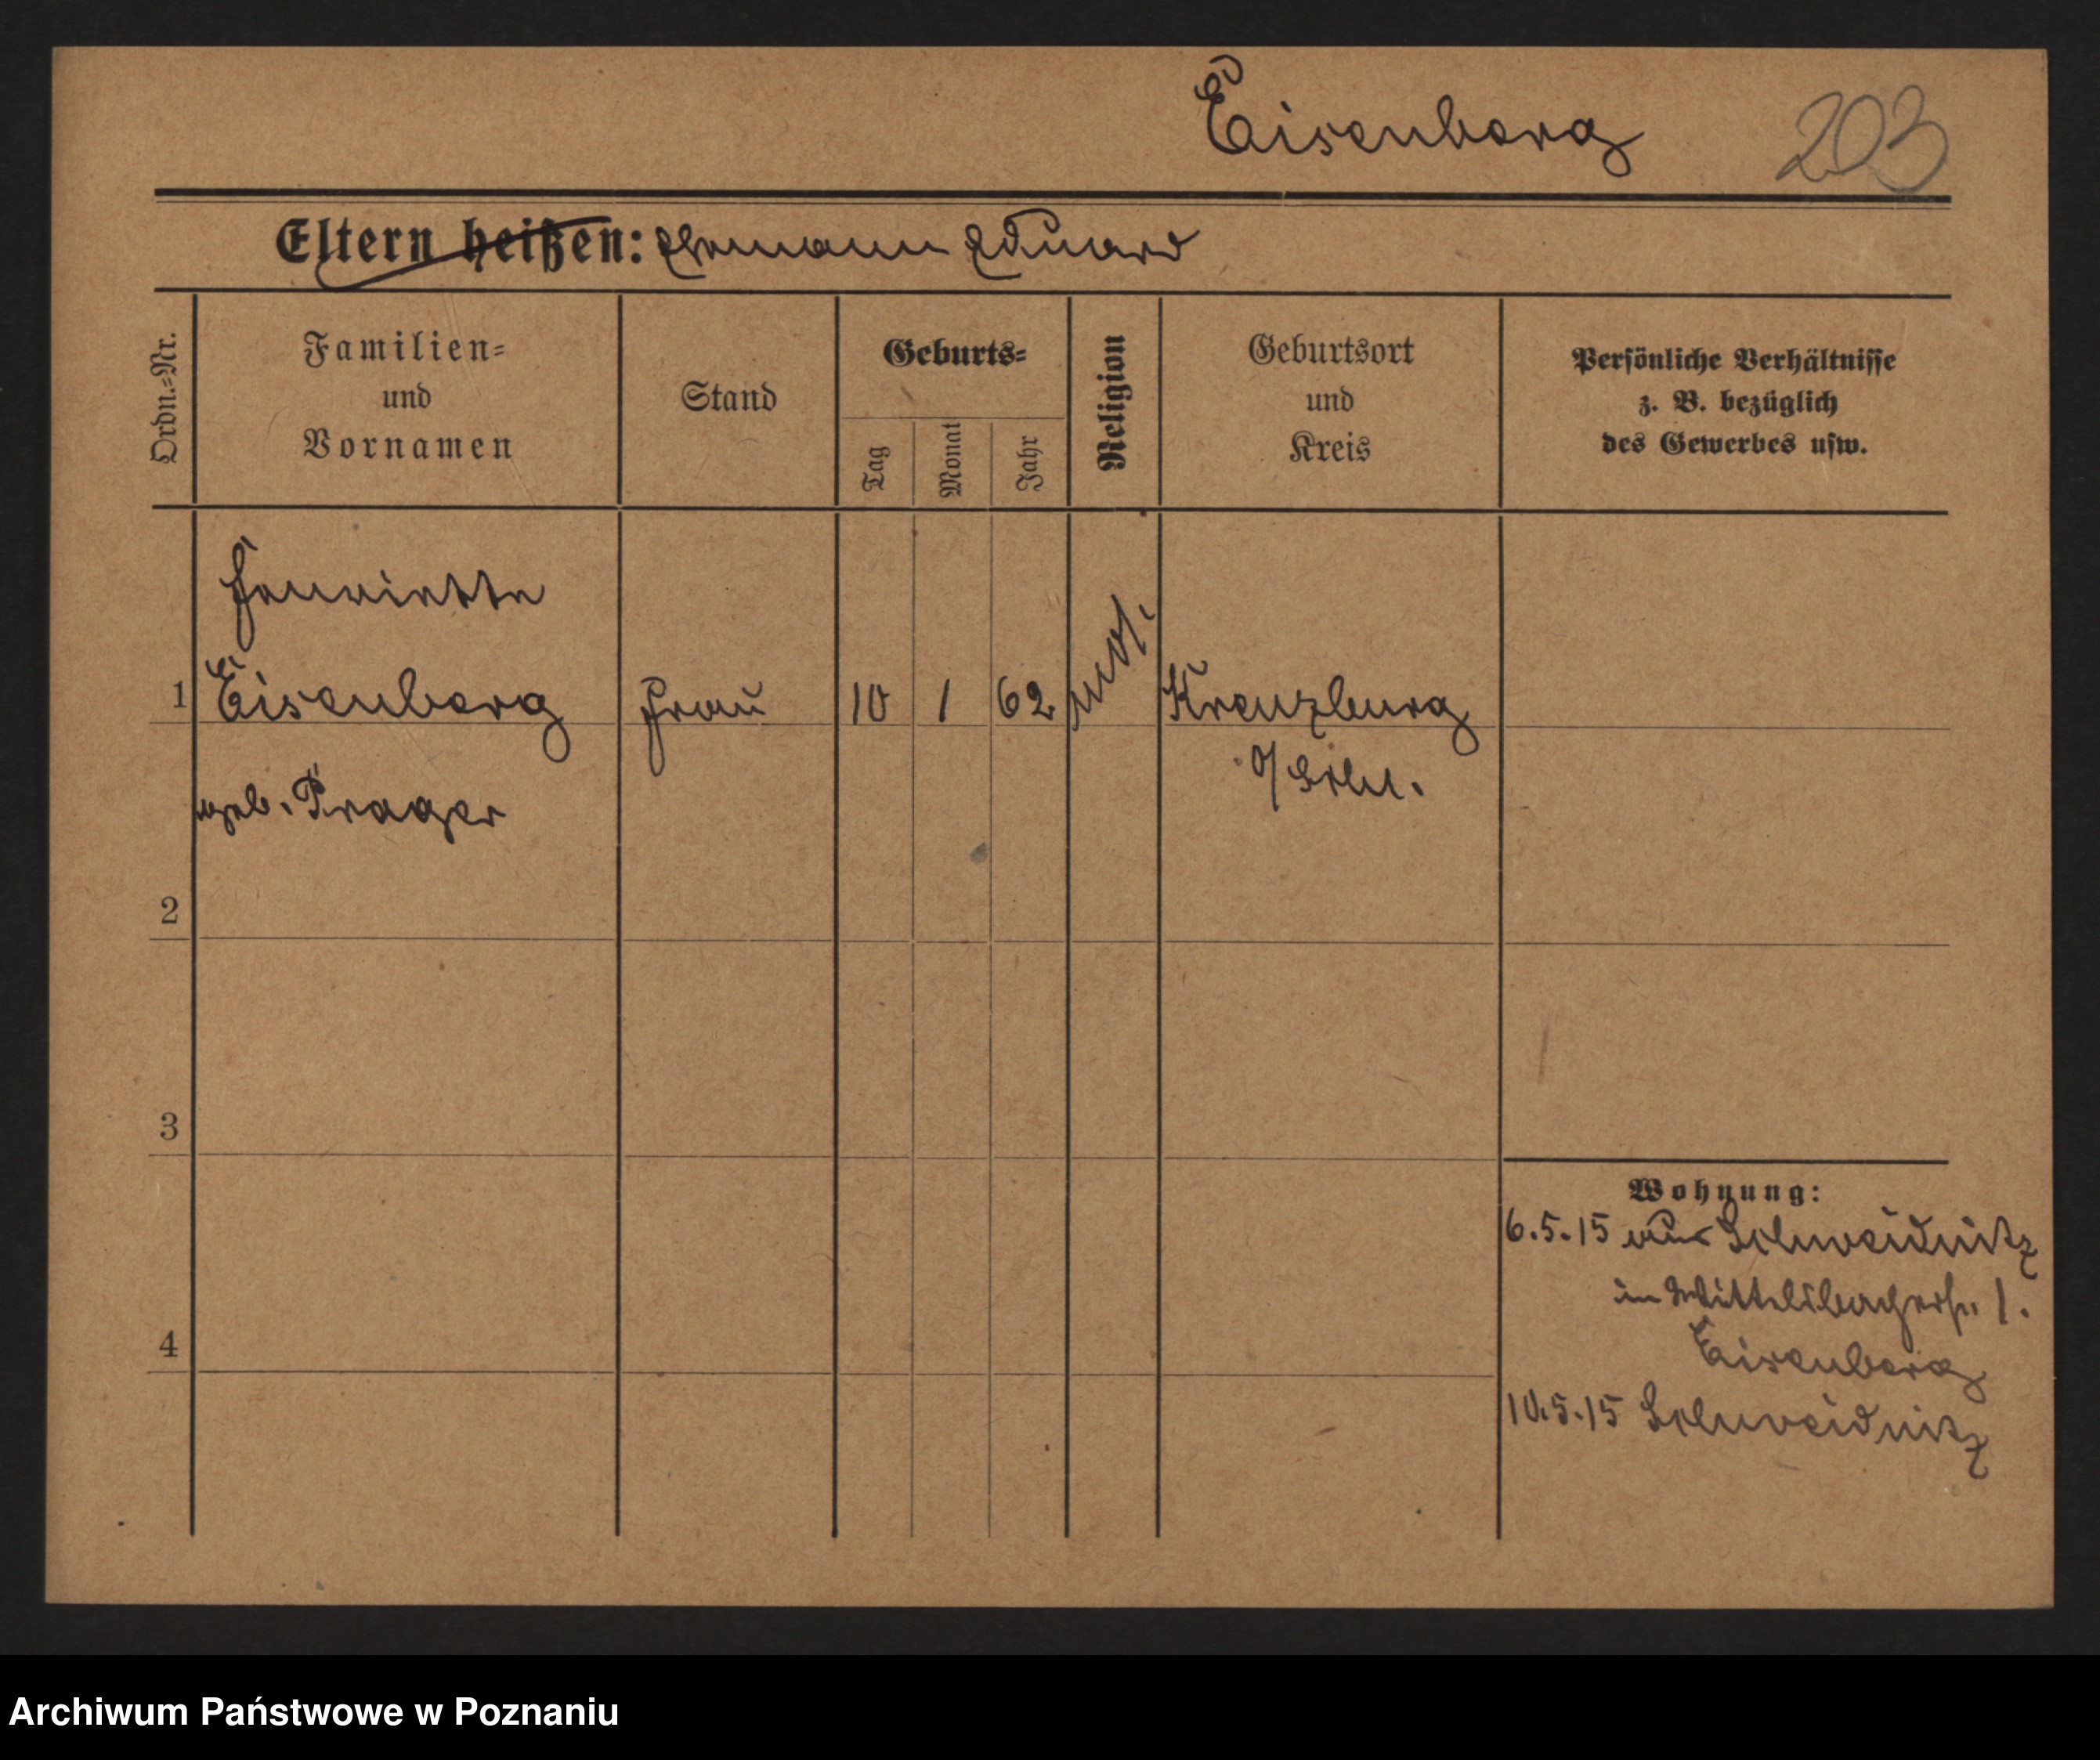 Eisenberg 203
Eltern heißen: Ehemann Eduard
Ordn.=Nr.
Familien=
und
Vornamen
Stand
Geburts=
Tag
Monat
Jahr
Religion
Geburtsort
und
Kreis
Persönliche Verhältnisse
z. B. bezüglich
des Gewerbes usw.
Henriette
1 Eisenberg Frau 10 1 62 mos. Kreuzburg
geb. Prager O/Schl.
2
3
4
Wohnung:
6.5.15 aus Schweidnitz
in Wittelsbacherstr. 1.
Eisenberg
10.5.15 Schweidnitz
Archiwum Państwowe w Poznaniu